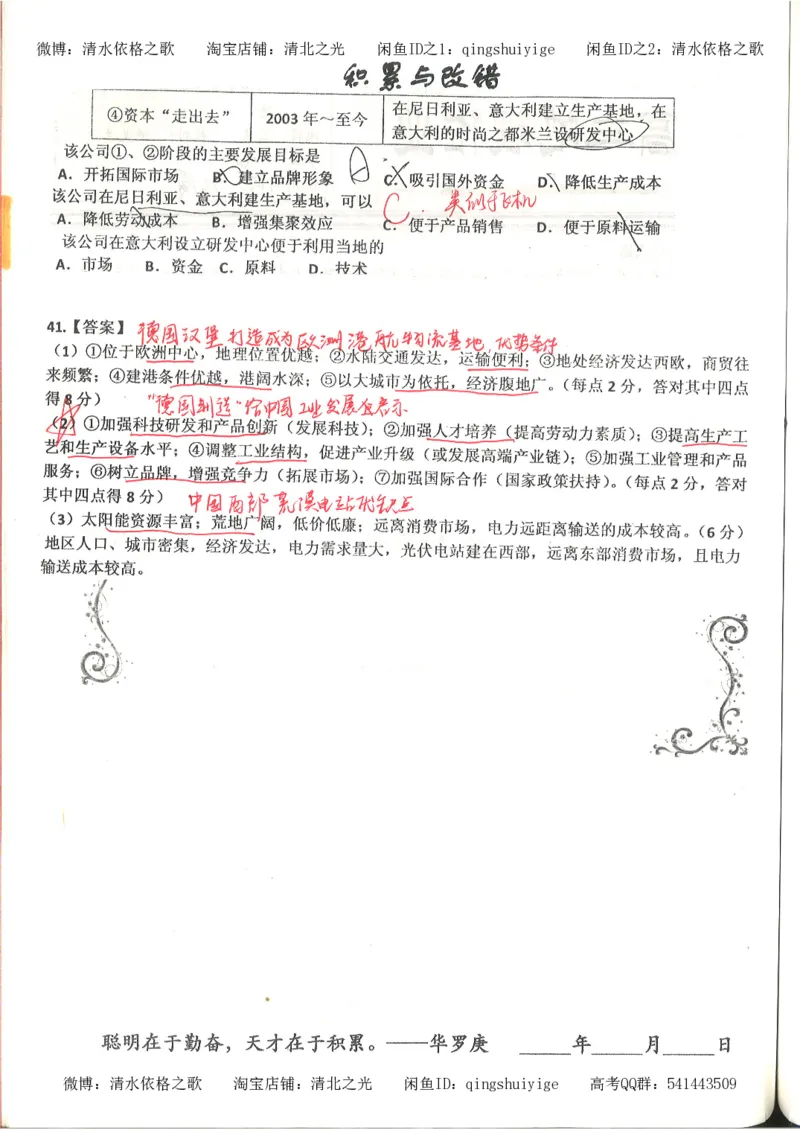 微博：清水依格之歌　　淘宝店铺：清北之光　　闲鱼ID之1：qingshuiyige　　闲鱼ID之2：清水依格之歌
积累与改错
④资本“走出去”　2003年～至今　在尼日利亚、意大利建立生产基地，在
意大利的时尚之都米兰设研发中心
该公司①、②阶段的主要发展目标是
A．开拓国际市场　　B．建立品牌形象　　C．吸引国外资金　　D．降低生产成本
该公司在尼日利亚、意大利建生产基地，可以
C．类似手机
A．降低劳动成本　　B．增强集聚效应　　C．便于产品销售　　D．便于原料运输
该公司在意大利设立研发中心便于利用当地的
A．市场　　B．资金　C．原料　　D．技术
41.【答案】德国汉堡打造成为欧洲港航物流基地 优势条件
（1）①位于欧洲中心，地理位置优越；②水陆交通发达，运输便利；③地处经济发达西欧，商贸往
来频繁；④建港条件优越，港阔水深；⑤以大城市为依托，经济腹地广。（每点2分，答对其中四点
得8分）“德国制造”给中国工业发展启示
（2）①加强科技研发和产品创新（发展科技）；②加强人才培养（提高劳动力素质）；③提高生产工
艺和生产设备水平；④调整工业结构，促进产业升级（或发展高端产业链）；⑤加强工业管理和产品
服务；⑥树立品牌，增强竞争力（拓展市场）；⑦加强国际合作（国家政策扶持）。（每点2分，答对
其中四点得8分）中国西部荒漠电站优缺点
（3）太阳能资源丰富；荒地广阔，低价低廉；远离消费市场，电力远距离输送的成本较高。（6分）
地区人口、城市密集，经济发达，电力需求量大，光伏电站建在西部，远离东部消费市场，且电力
输送成本较高。
聪明在于勤奋，天才在于积累。——华罗庚　____年____月____日
微博：清水依格之歌　　淘宝店铺：清北之光　　闲鱼ID：qingshuiyige　　高考QQ群：541443509